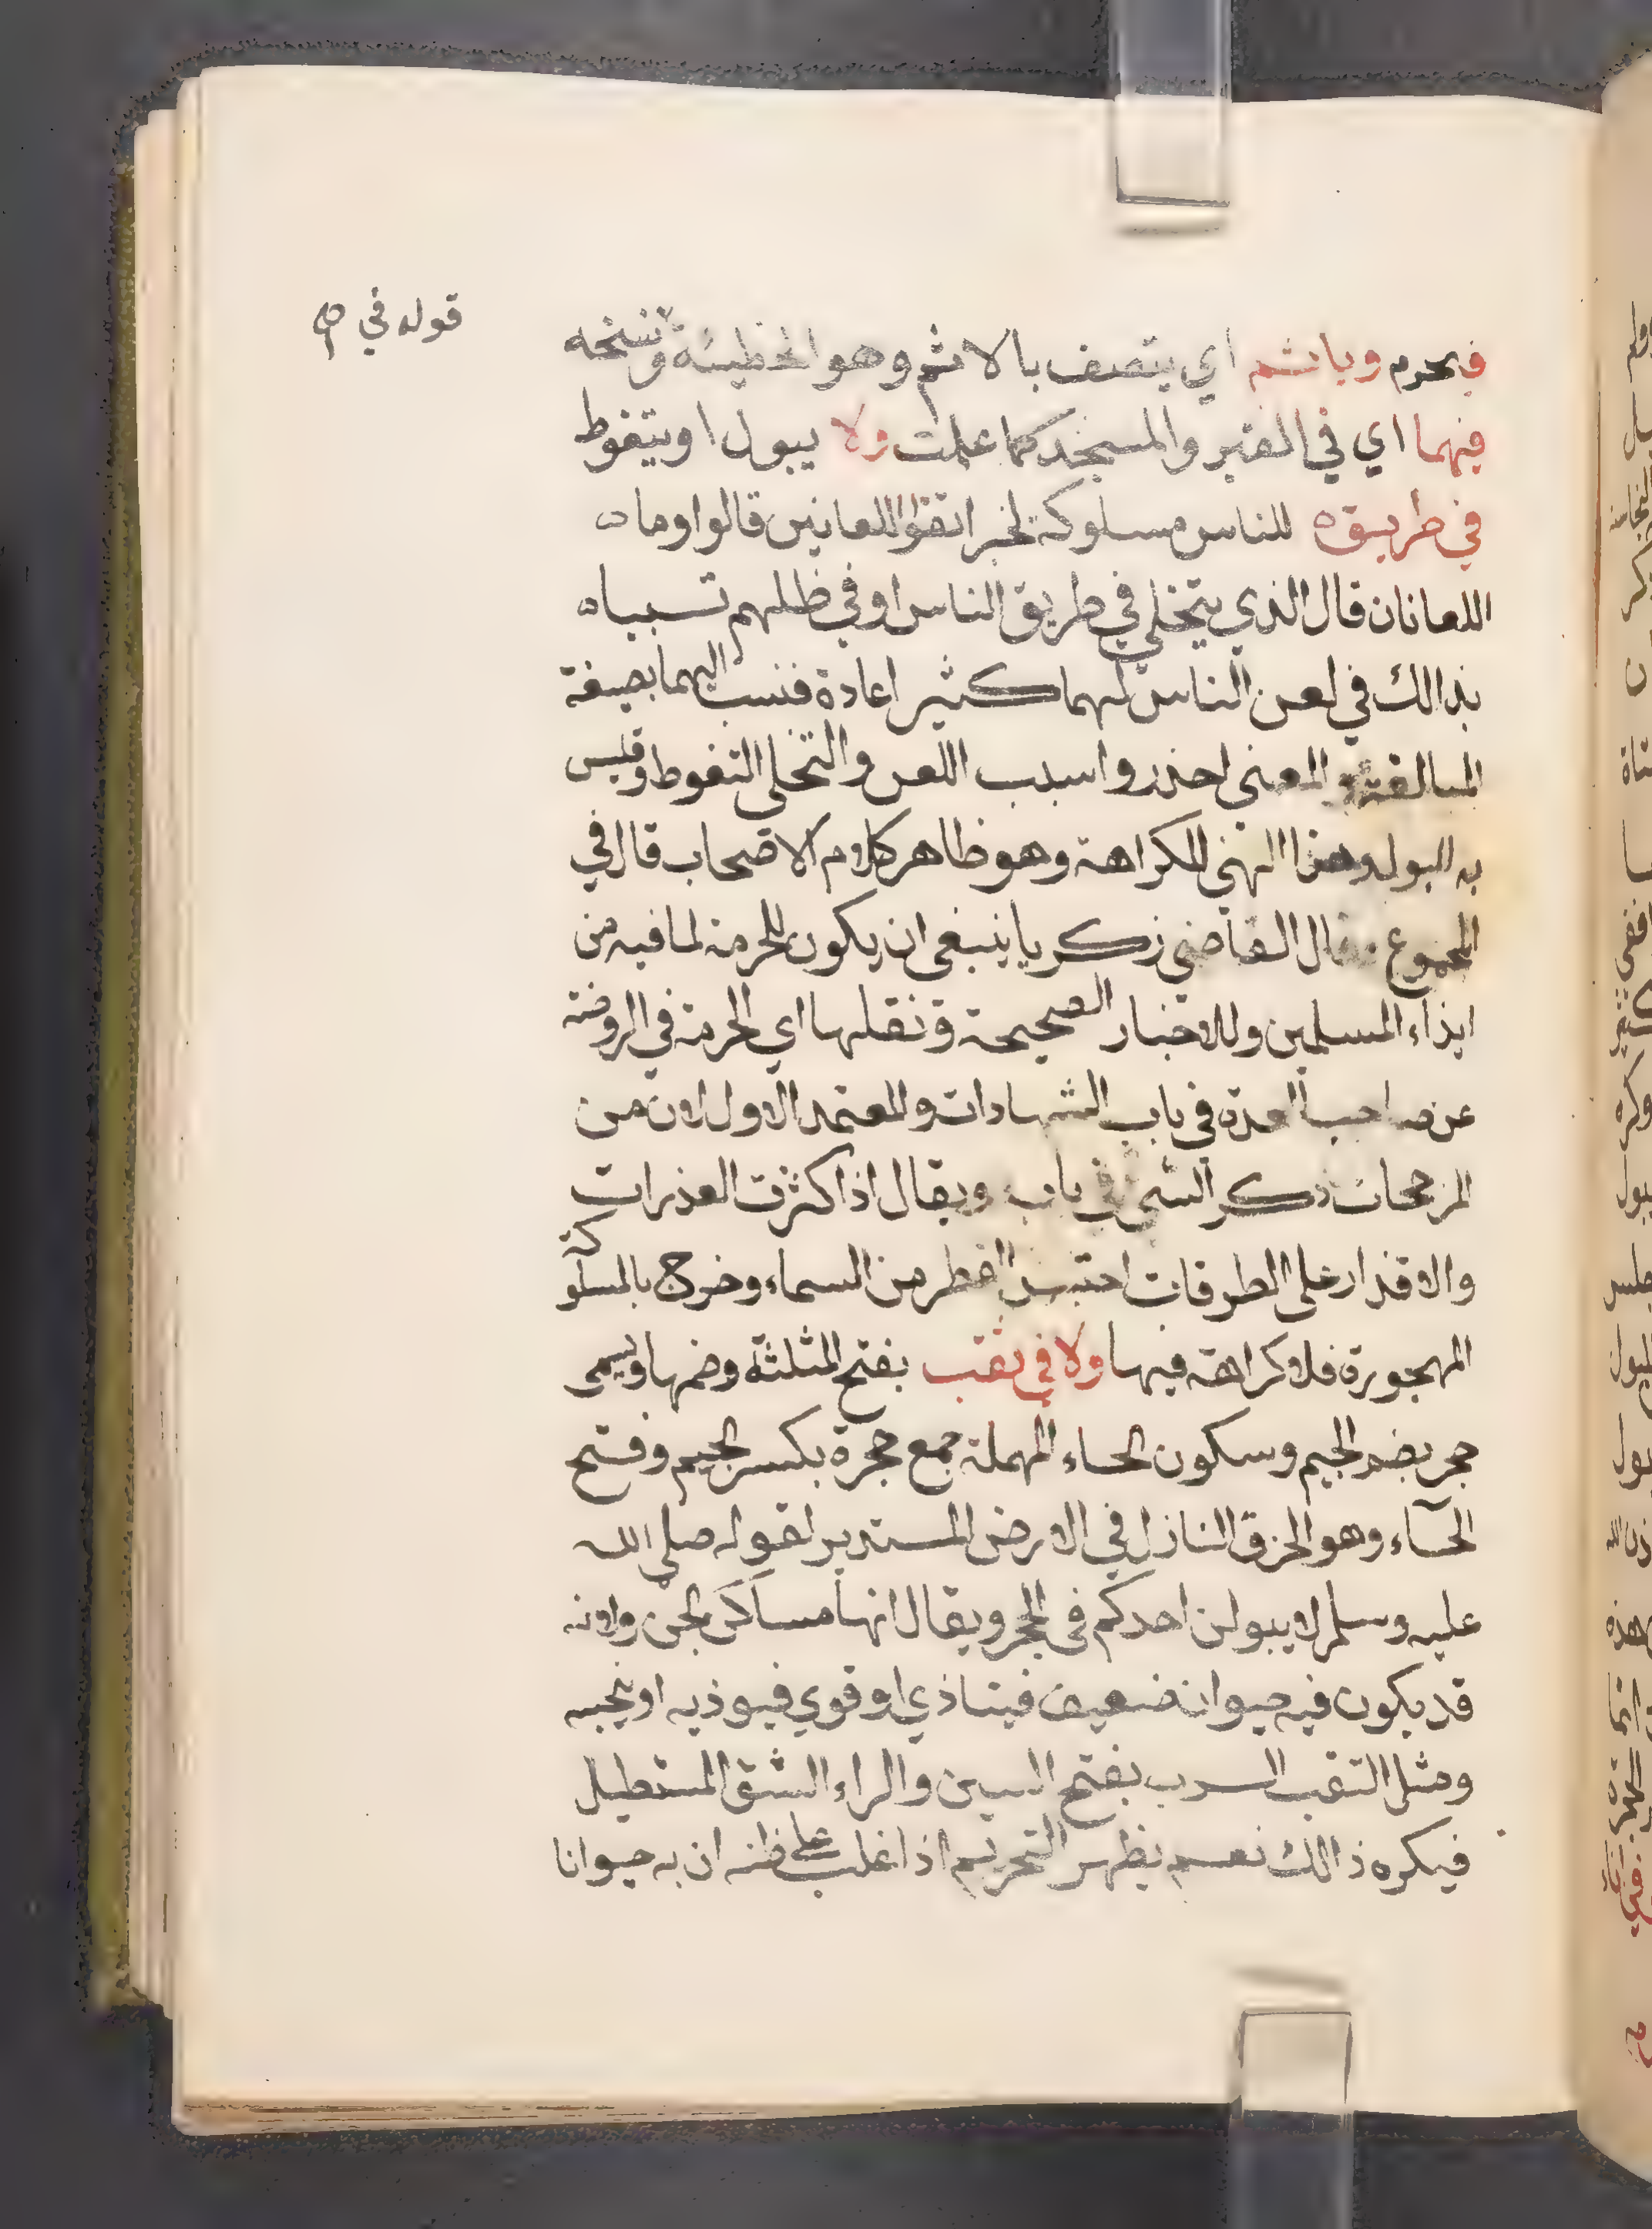 قوله في
فيحرم وياثم اي يتصف بالاثم وهو الخطيئة ونسخه
فيهما اي في القبر والمسجد كما علمت ولا يبول او يتغوط
في طريق للناس مسلوكة لخبر اتقوا اللعانين قالوا وما
اللعانان قال الذي يتخلي في طريق الناس او في ظلهم تسببا
بذالك في لعن الناس لهما كثير اعادة فنسب اليهما بصيغة
المبالغة والمعني احذروا سبب اللعن والتخلي التغوط وقيس
به البول وهذا النهي للكراهة وهو ظاهر كلام الاصحاب قال في
المجموع وقال القاضي زكريا ينبغي ان يكون للحرمة لما فيه من
ايذاء المسلمين وللاخبار الصحيحة ونقلها اي الحرمة في الروضة
عن صاحب العدة في باب الشهادات والمعتمد الاول لان من
المرجحات ذكر الشي في بابه ويقال اذا كثرت العذرات
والاقذار علي الطرقات احتبس القطر من السماء وخرج بالمسلوكة
المهجورة فلا كراهة فيها ولا في ثقب بفتح المثلثة وضمها ويسمي
جحر بضم الجيم وسكون الحاء المهملة جمع جحرة بكسر الجيم وفتح
الحآء وهو الخرق النازل في الارض المستدير لقوله صلي الله
عليه وسلم لا يبولن احدكم في الجحر ويقال انها مساكن الجن ولانه
قد يكون فيه حيوان ضعيف فيتاذي او قوي فيوذيه او ينجسه
ومثل الثقب السرب بفتح السين والراء الشق المستطيل
فيكره ذالك نعم يظهر التحريم اذا غلب علي ظنه ان به حيوانا